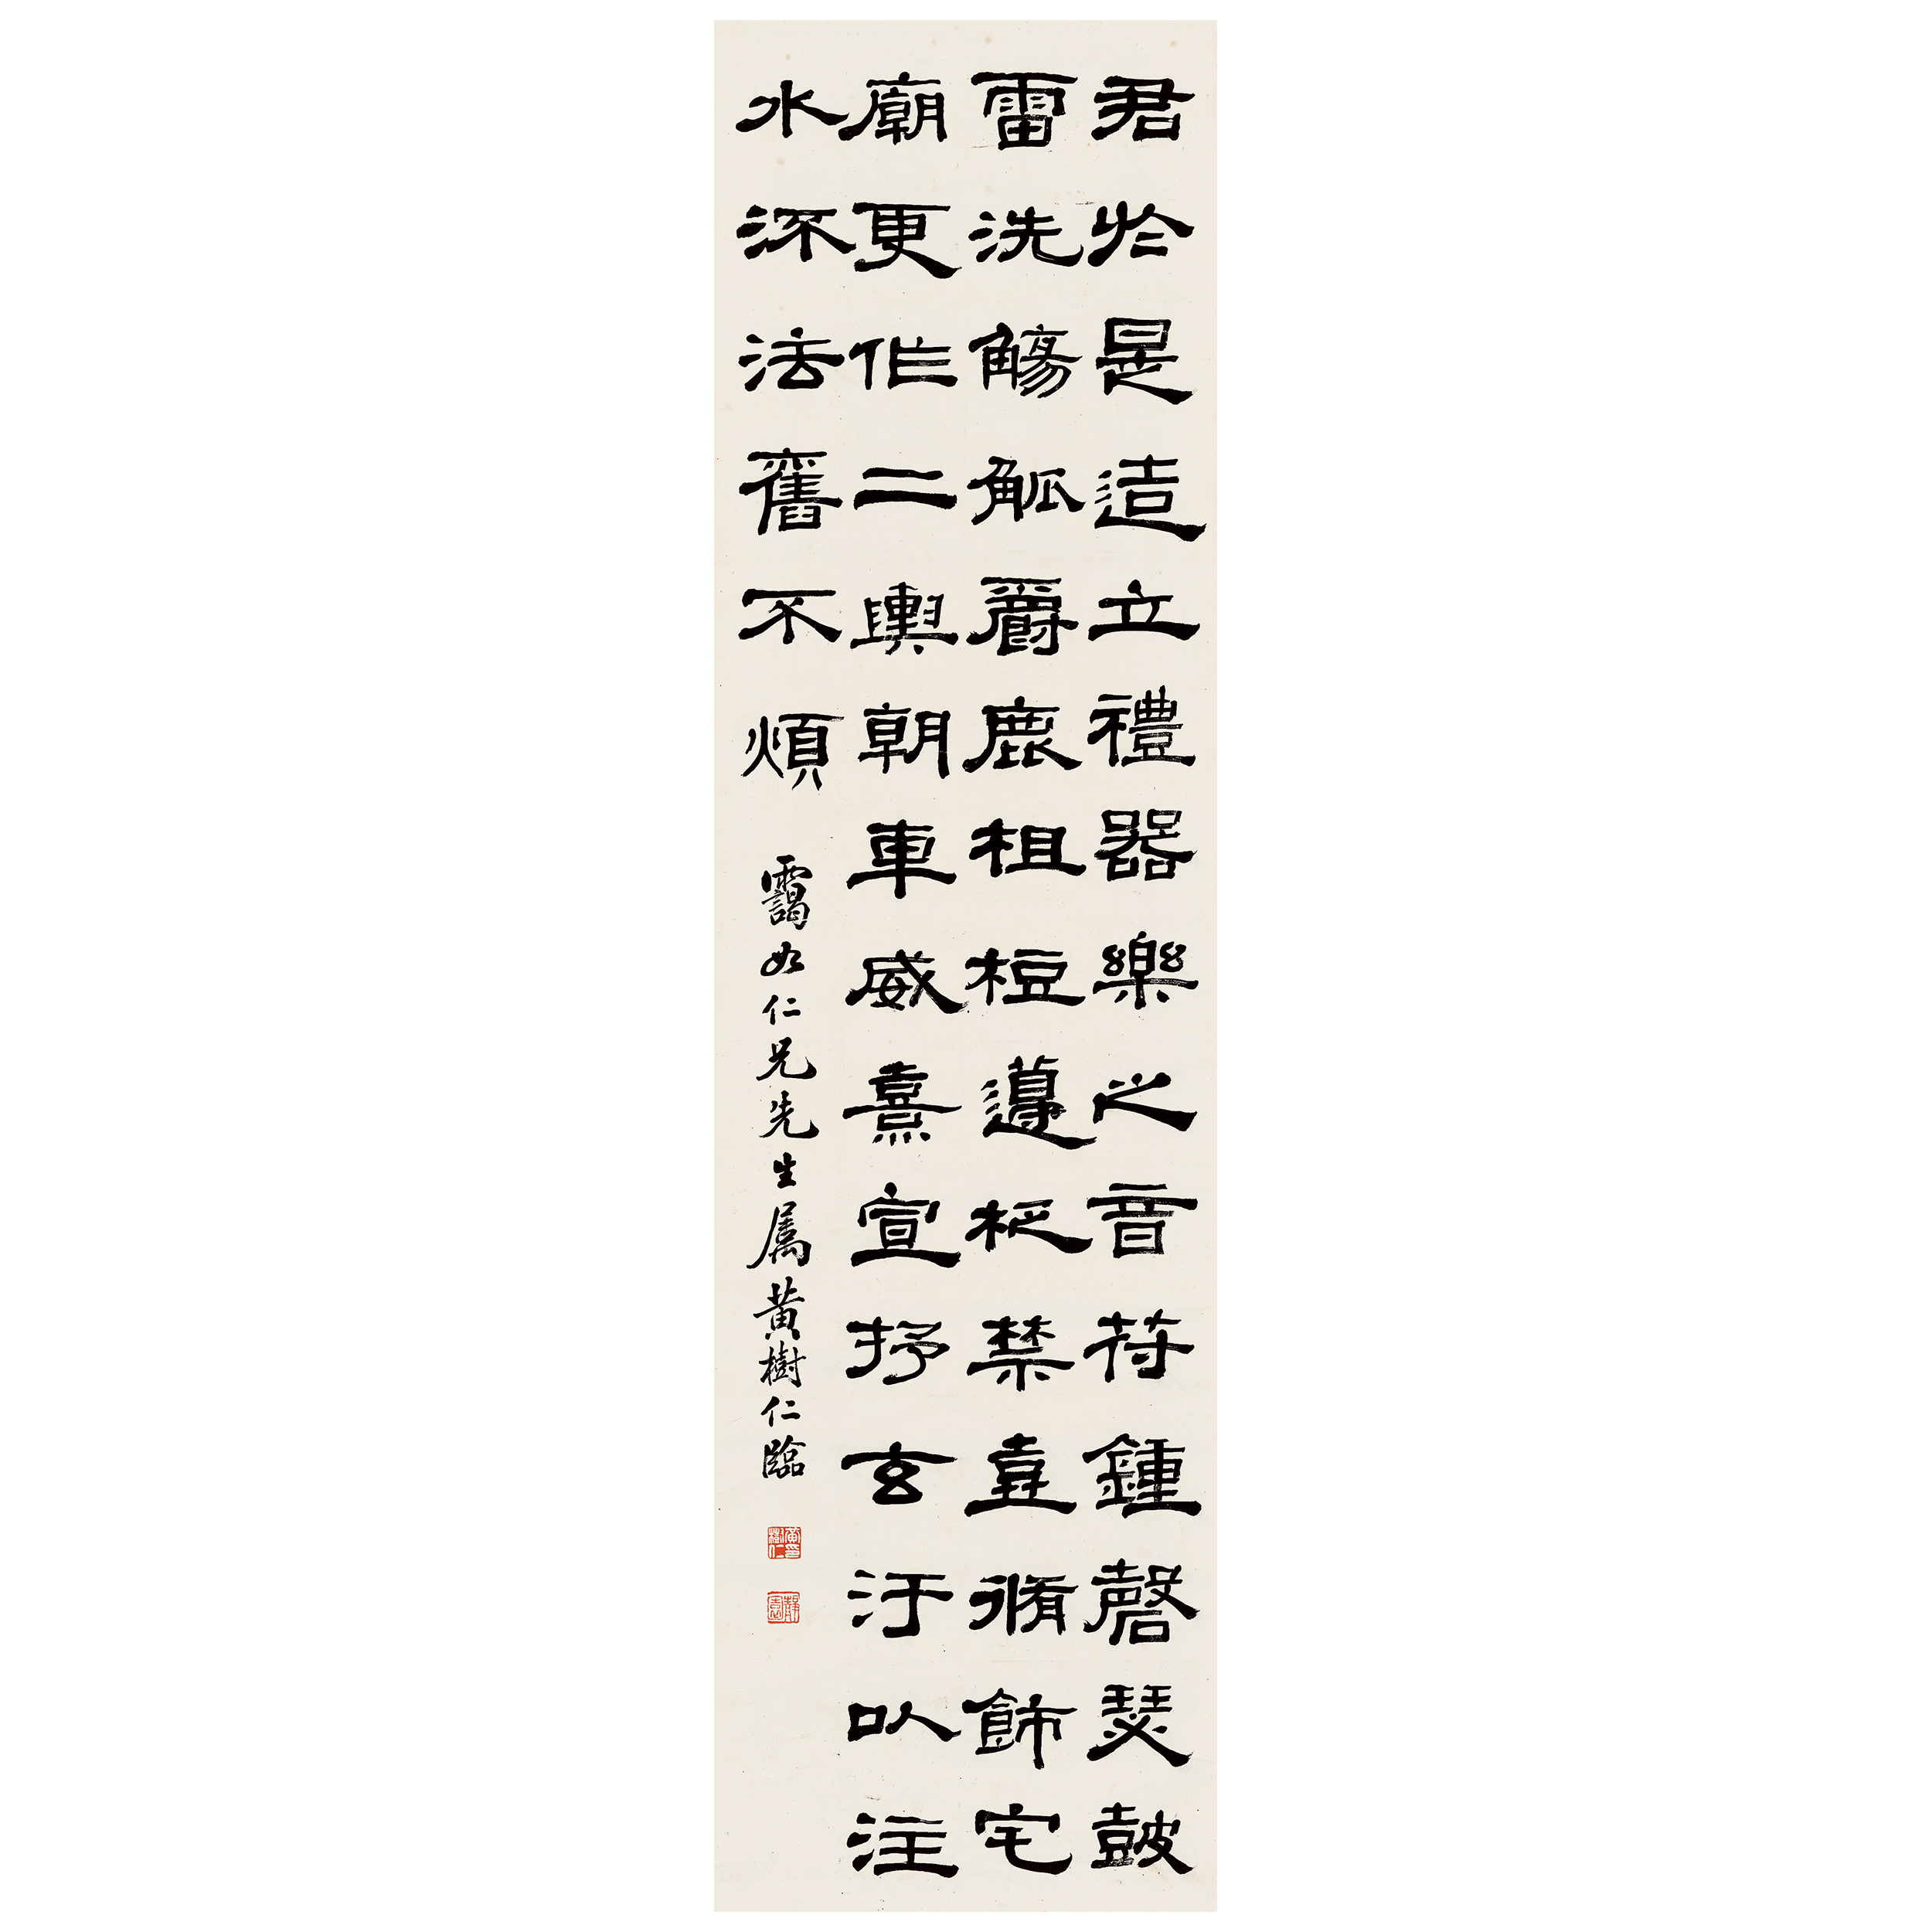 君於是造立禮器樂之音符鍾磬瑟鼓
雷洗觴觚爵鹿柤梪籩柉禁壺脩飾宅
廟更作二輿朝車威熹宣抒玄汙以注
水流法舊不煩
靄如仁兄先生属黃樹仁臨
黃樹仁印
靜園